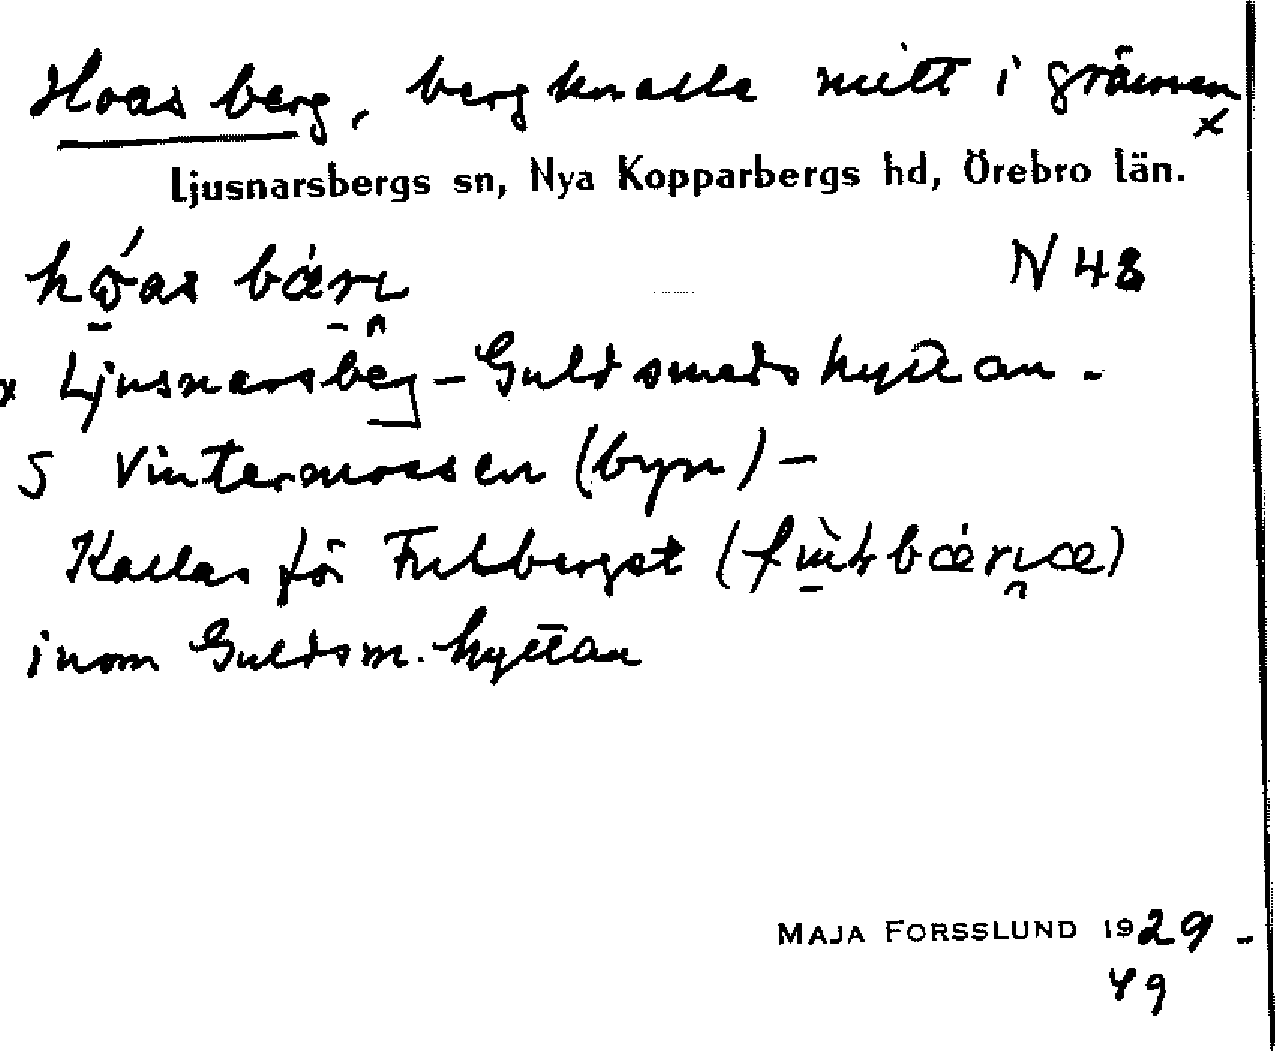 Hoas berg, bergknalle mitt i gränsen x
Ljusnarsbergs sn, Nya Kopparbergs hd, Örebro län.
N 48
x Ljusnarsberg – Guldsmedshyttan -
S Vintermossen (byn) –
Kallas för Fulberget
inom Guldsm. hyttan
MAJA FORSSLUND 1929 -
49